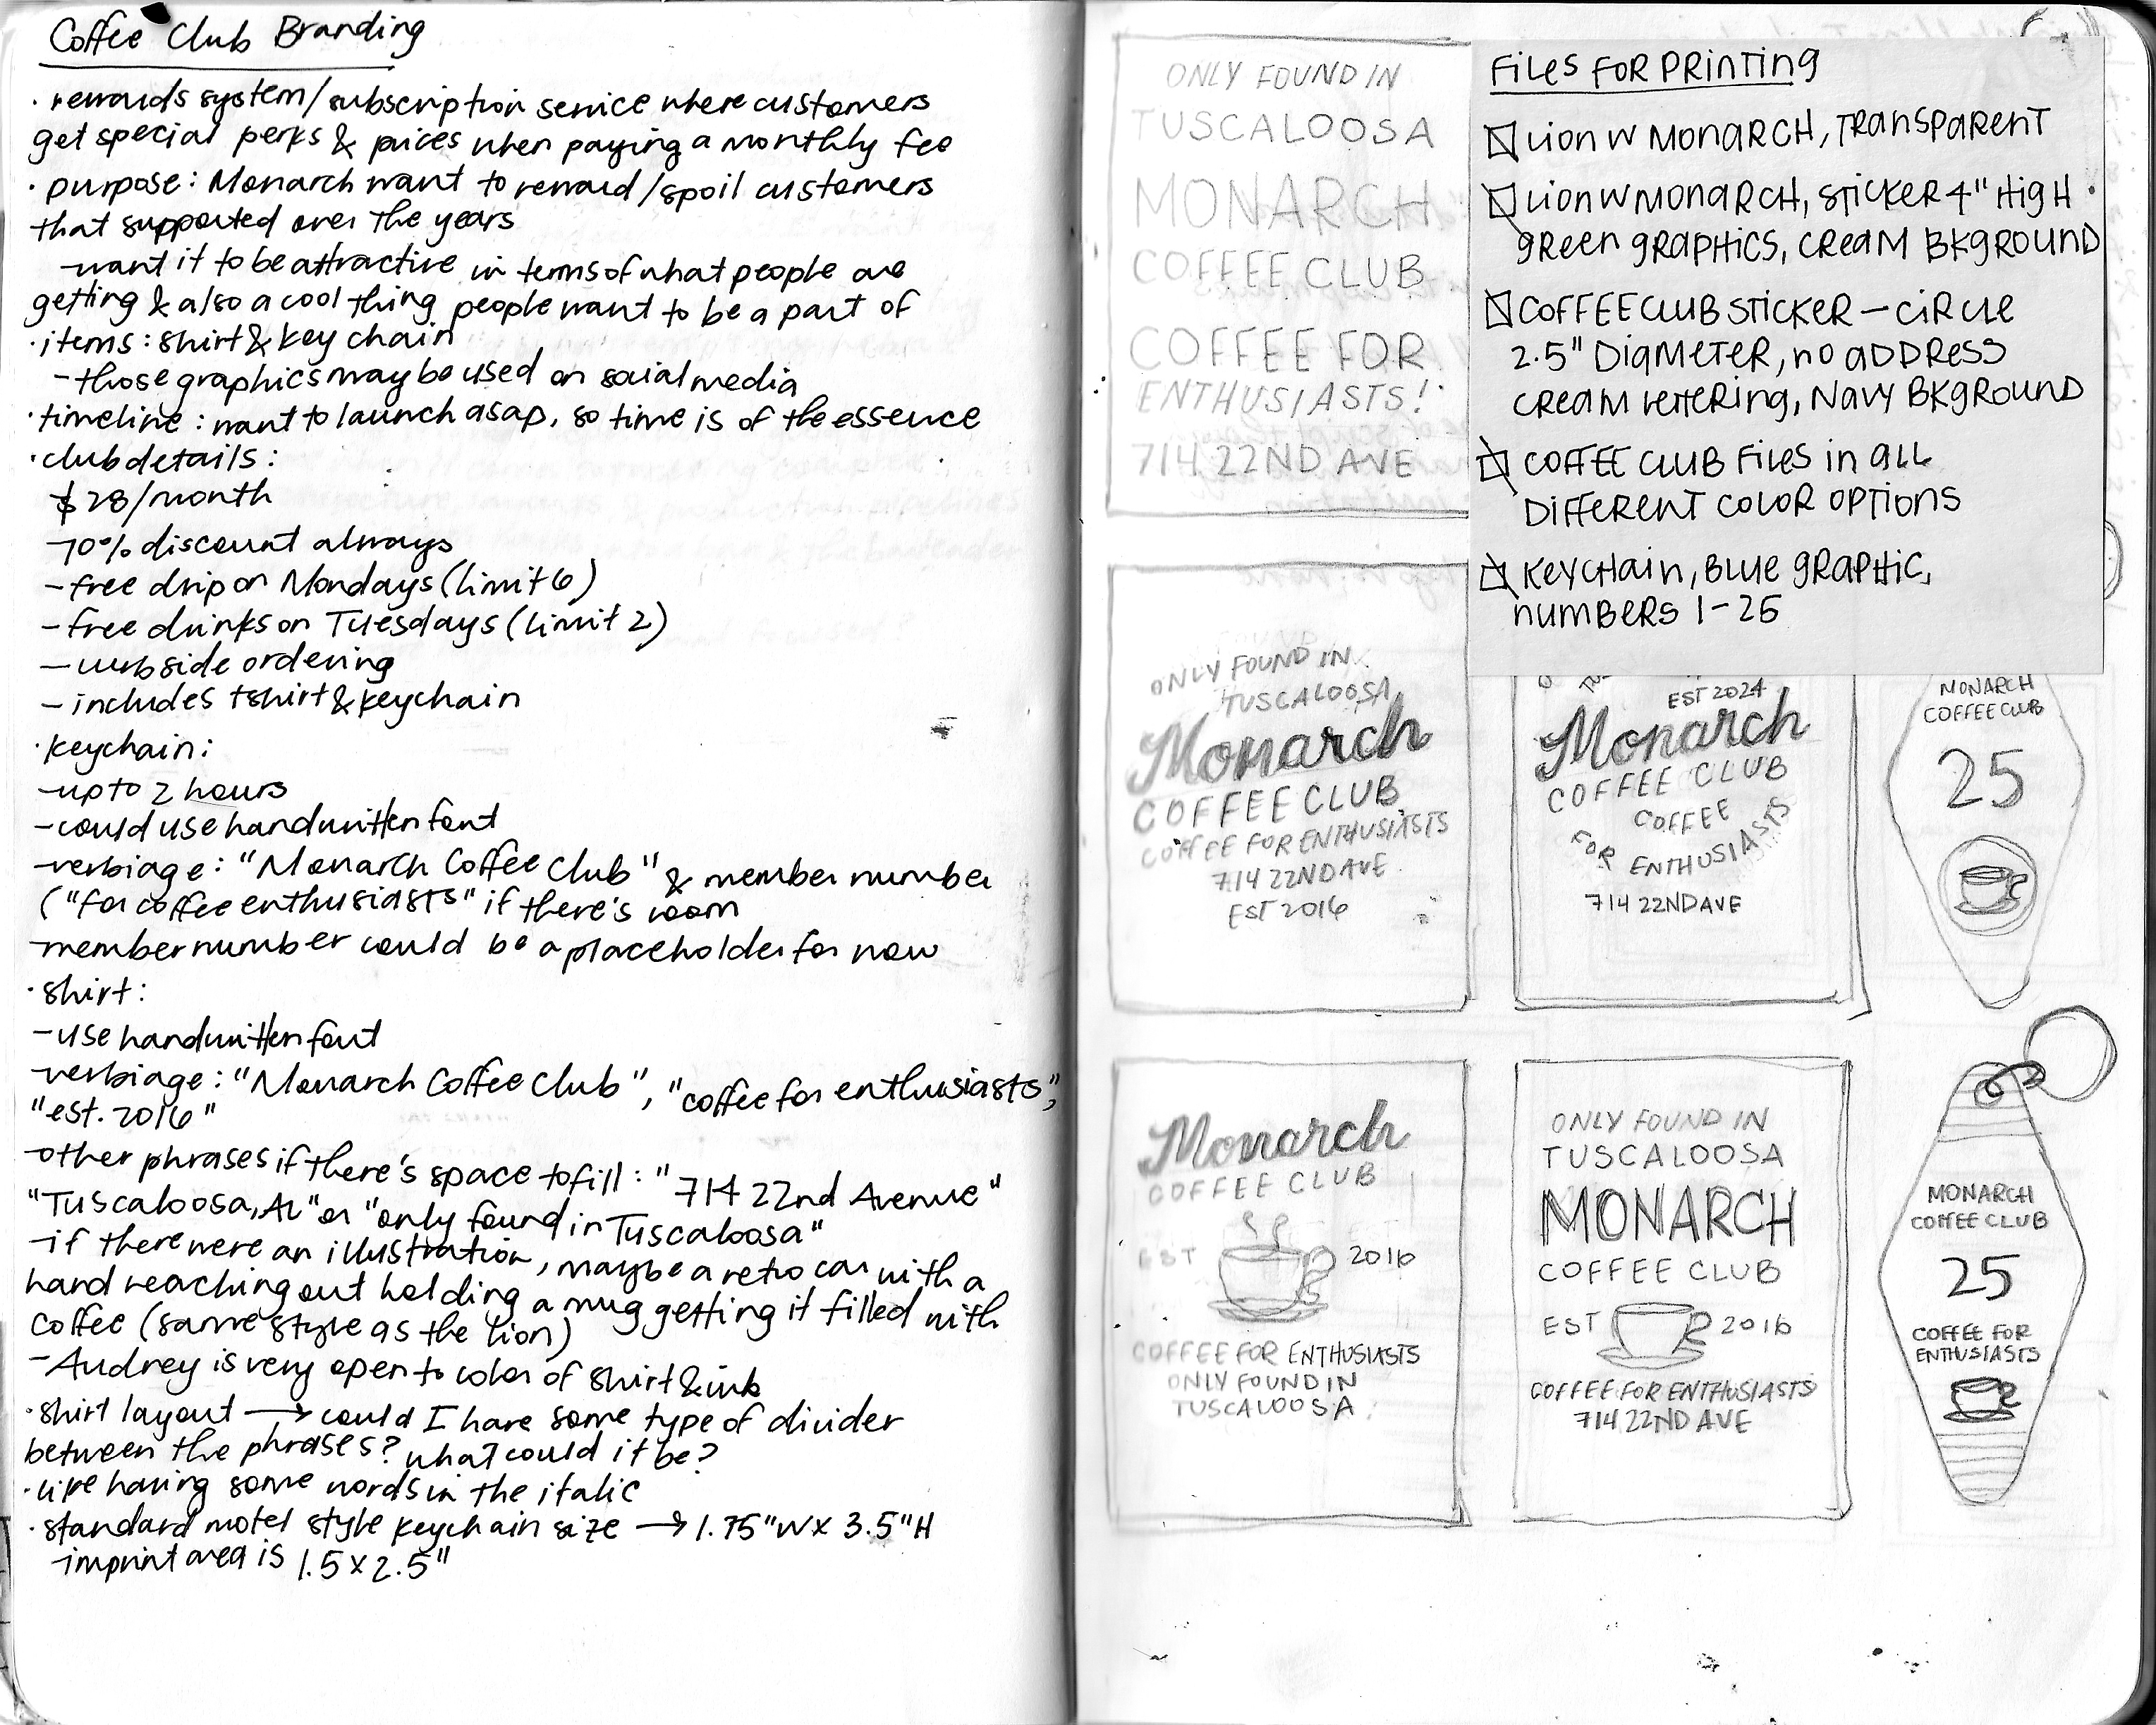 Coffee Club Branding
· rewards system/subscription service where customers
get special perks & prices when paying a monthly fee
· purpose: Monarch want to reward/spoil customers
that supported over the years
-want it to be attractive in terms of what people are
getting & also a cool thing people want to be a part of
· items: shirt & key chain
- those graphics may be used on social media
· timeline: want to launch asap, so time is of the essence
· club details:
$28/month
-10% discount always
- free drip on Mondays (limit 6)
- free drinks on Tuesdays (limit 2)
- curbside ordering
- includes tshirt & keychain
· keychain:
-up to 2 hours
-could use handwritten font
-verbiage: "Monarch Coffee Club" & member number
("for coffee enthusiasts" if there's room
-member number could be a placeholder for now
· shirt:
-use handwritten font
-verbiage: "Monarch Coffee Club", "coffee for enthusiasts",
"est. 2016"
-other phrases if there's space to fill: "714 22nd Avenue"
"Tuscaloosa, AL" or "only found in Tuscaloosa"
-if there were an illustration, maybe a retro car with a
hand reaching out holding a mug getting it filled with
coffee (same style as the lion)
- Audrey is very open to color of shirt & ink
· shirt layout → could I have some type of divider
between the phrases? what could it be?
· like having some words in the italic
· standard motel style keychain size → 1.75"W x 3.5"H
-imprint area is 1.5 x 2.5"
ONLY FOUND IN
TUSCALOOSA
MONARCH
COFFEE CLUB
COFFEE FOR
ENTHUSIASTS!
714 22ND AVE
FILES FOR PRINTING
LION W MONARCH, TRANSPARENT
LION W MONARCH, STICKER 4" HIGH
GREEN GRAPHICS, CREAM BKGROUND
COFFEE CLUB STICKER - CIRCLE
2.5" DIAMETER, NO ADDRESS
CREAM LETTERING, NAVY BKGROUND
COFFEE CLUB FILES IN ALL
DIFFERENT COLOR OPTIONS
KEYCHAIN, BLUE GRAPHIC,
NUMBERS 1-25
ONLY FOUND IN
TUSCALOOSA
Monarch
COFFEE CLUB
COFFEE FOR ENTHUSIASTS
714 22ND AVE
EST 2016
EST 2024
Monarch
COFFEE CLUB
COFFEE
FOR ENTHUSIASTS
714 22ND AVE
MONARCH
COFFEE CLUB
25
Monarch
COFFEE CLUB
EST 2016
COFFEE FOR ENTHUSIASTS
ONLY FOUND IN
TUSCALOOSA
ONLY FOUND IN
TUSCALOOSA
MONARCH
COFFEE CLUB
EST 2016
COFFEE FOR ENTHUSIASTS
714 22ND AVE
MONARCH
COFFEE CLUB
25
COFFEE FOR
ENTHUSIASTS